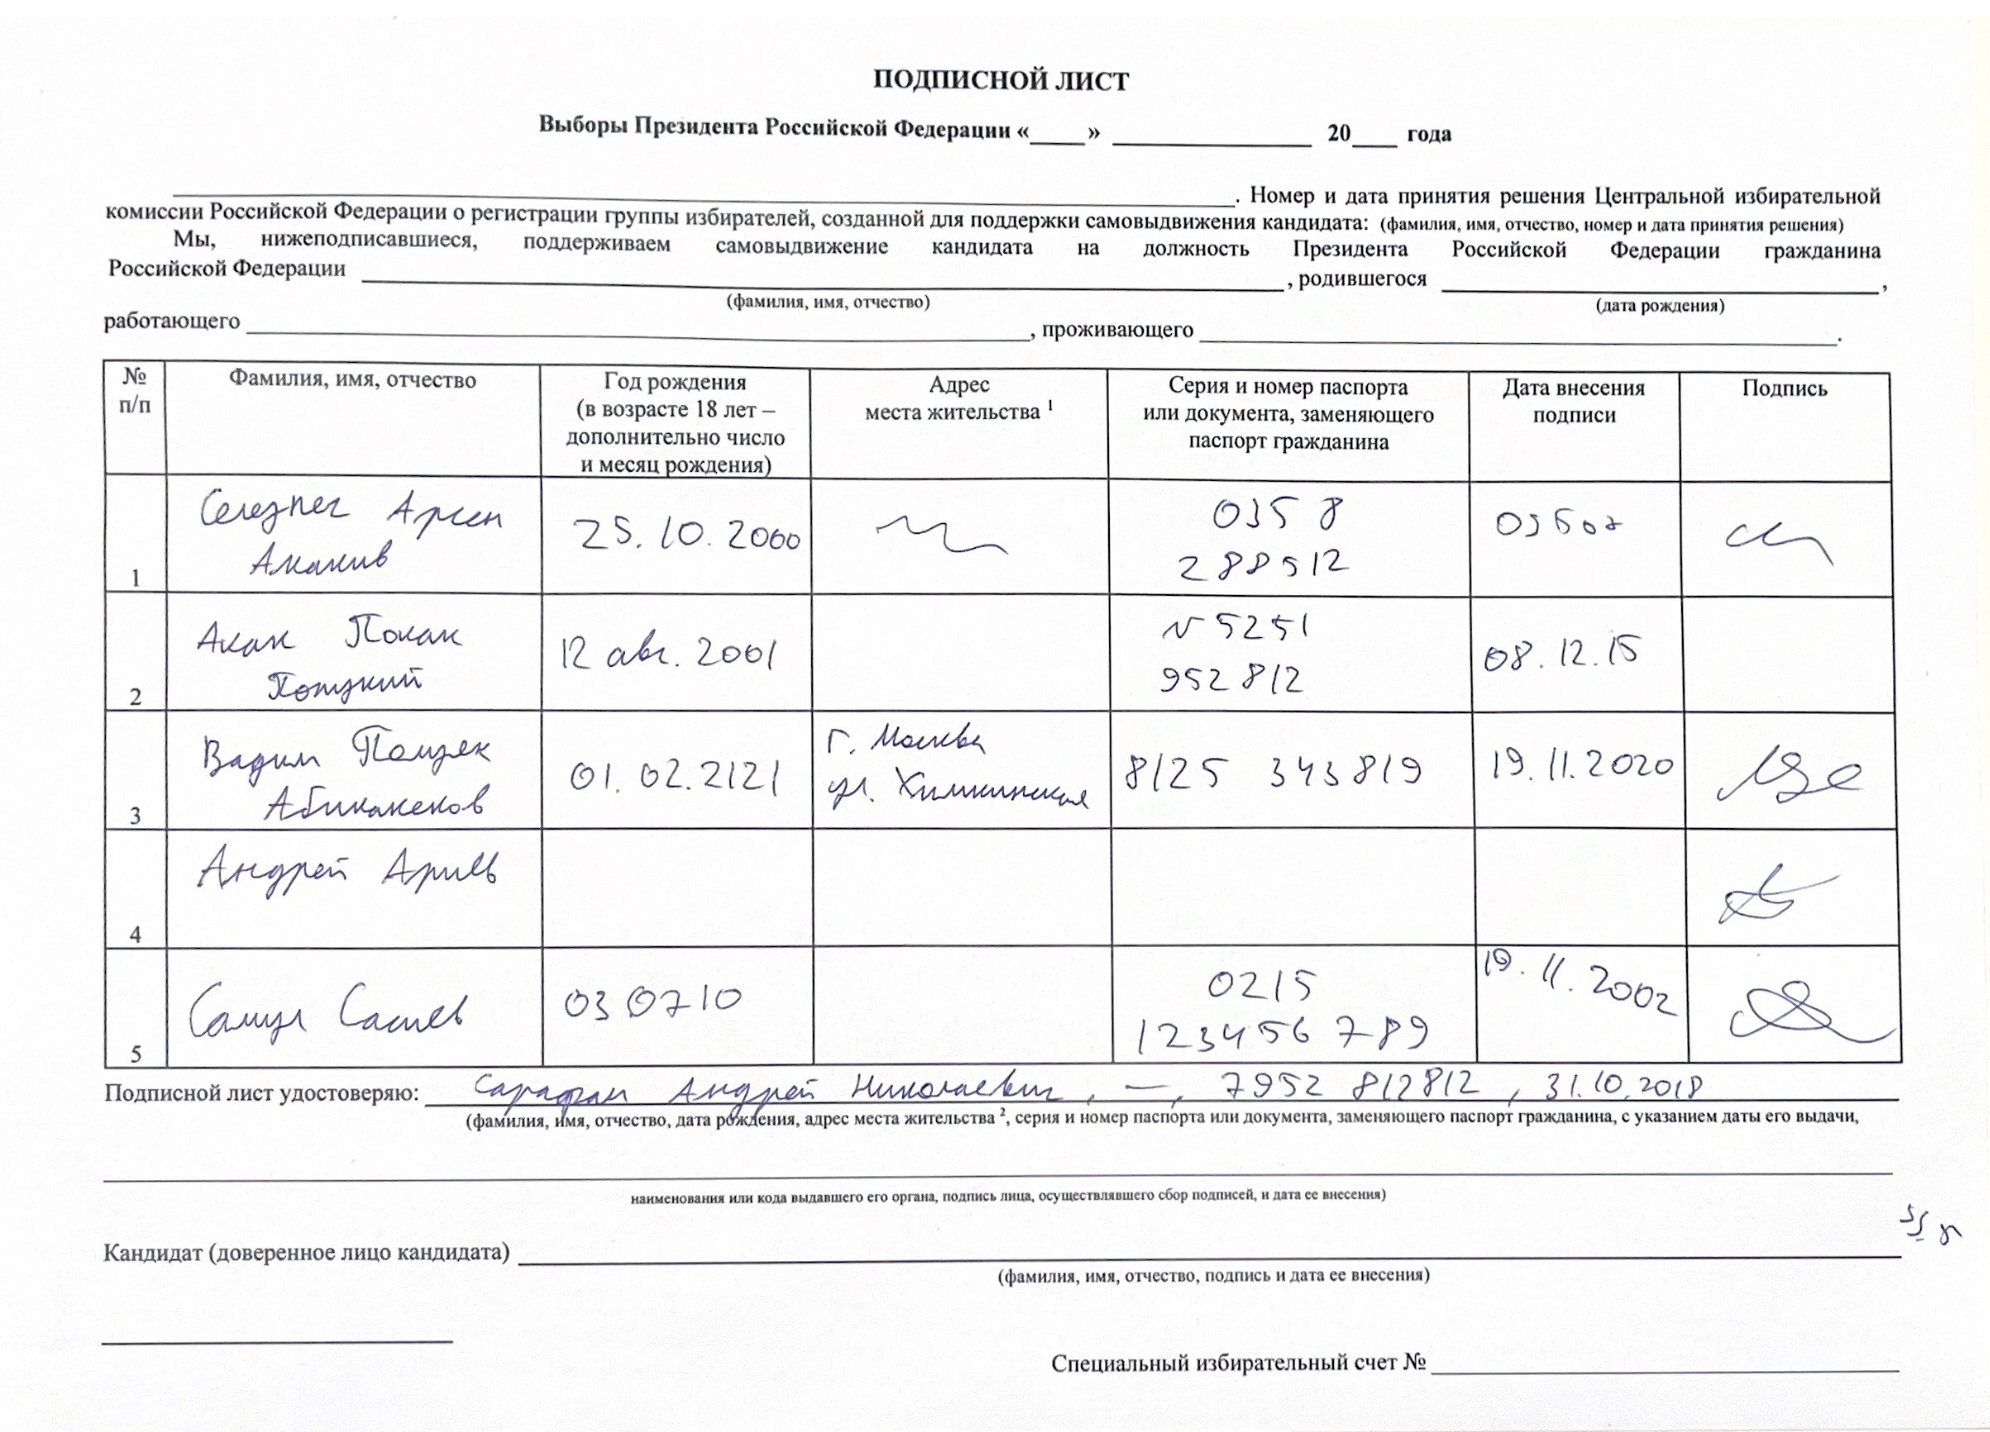 ПОДПИСНОЙ ЛИСТ
Выборы Президента Российской Федерации «____» ________________ 20____ года
. Номер и дата принятия решения Центральной избирательной
комиссии Российской Федерации о регистрации группы избирателей, созданной для поддержки самовыдвижения кандидата: (фамилия, имя, отчество, номер и дата принятия решения)
Мы, нижеподписавшиеся, поддерживаем самовыдвижение кандидата на должность Президента Российской Федерации гражданина
Российской Федерации , родившегося ,
(фамилия, имя, отчество) (дата рождения)
работающего , проживающего .
№ п/п
Фамилия, имя, отчество
Год рождения
(в возрасте 18 лет –
дополнительно число
и месяц рождения)
Адрес
места жительства 1
Серия и номер паспорта
или документа, заменяющего
паспорт гражданина
Дата внесения
подписи
Подпись
1
Арсен
25.10.2000
288512
2
Акак
12 авг. 2001
№ 5251
952812
08.12.15
3
Вадим
01.02.2121
г. Москва
ул. Химкинская
8125 343819
19.11.2020
4
Андрей
5
030710
0215
123456789
19.11.2002
Подписной лист удостоверяю: Андрей Николаевич, —, 7952 812812, 31.10.2018
(фамилия, имя, отчество, дата рождения, адрес места жительства 2, серия и номер паспорта или документа, заменяющего паспорт гражданина, с указанием даты его выдачи,
наименования или кода выдавшего его органа, подпись лица, осуществлявшего сбор подписей, и дата ее внесения)
Кандидат (доверенное лицо кандидата)
(фамилия, имя, отчество, подпись и дата ее внесения)
Специальный избирательный счет №